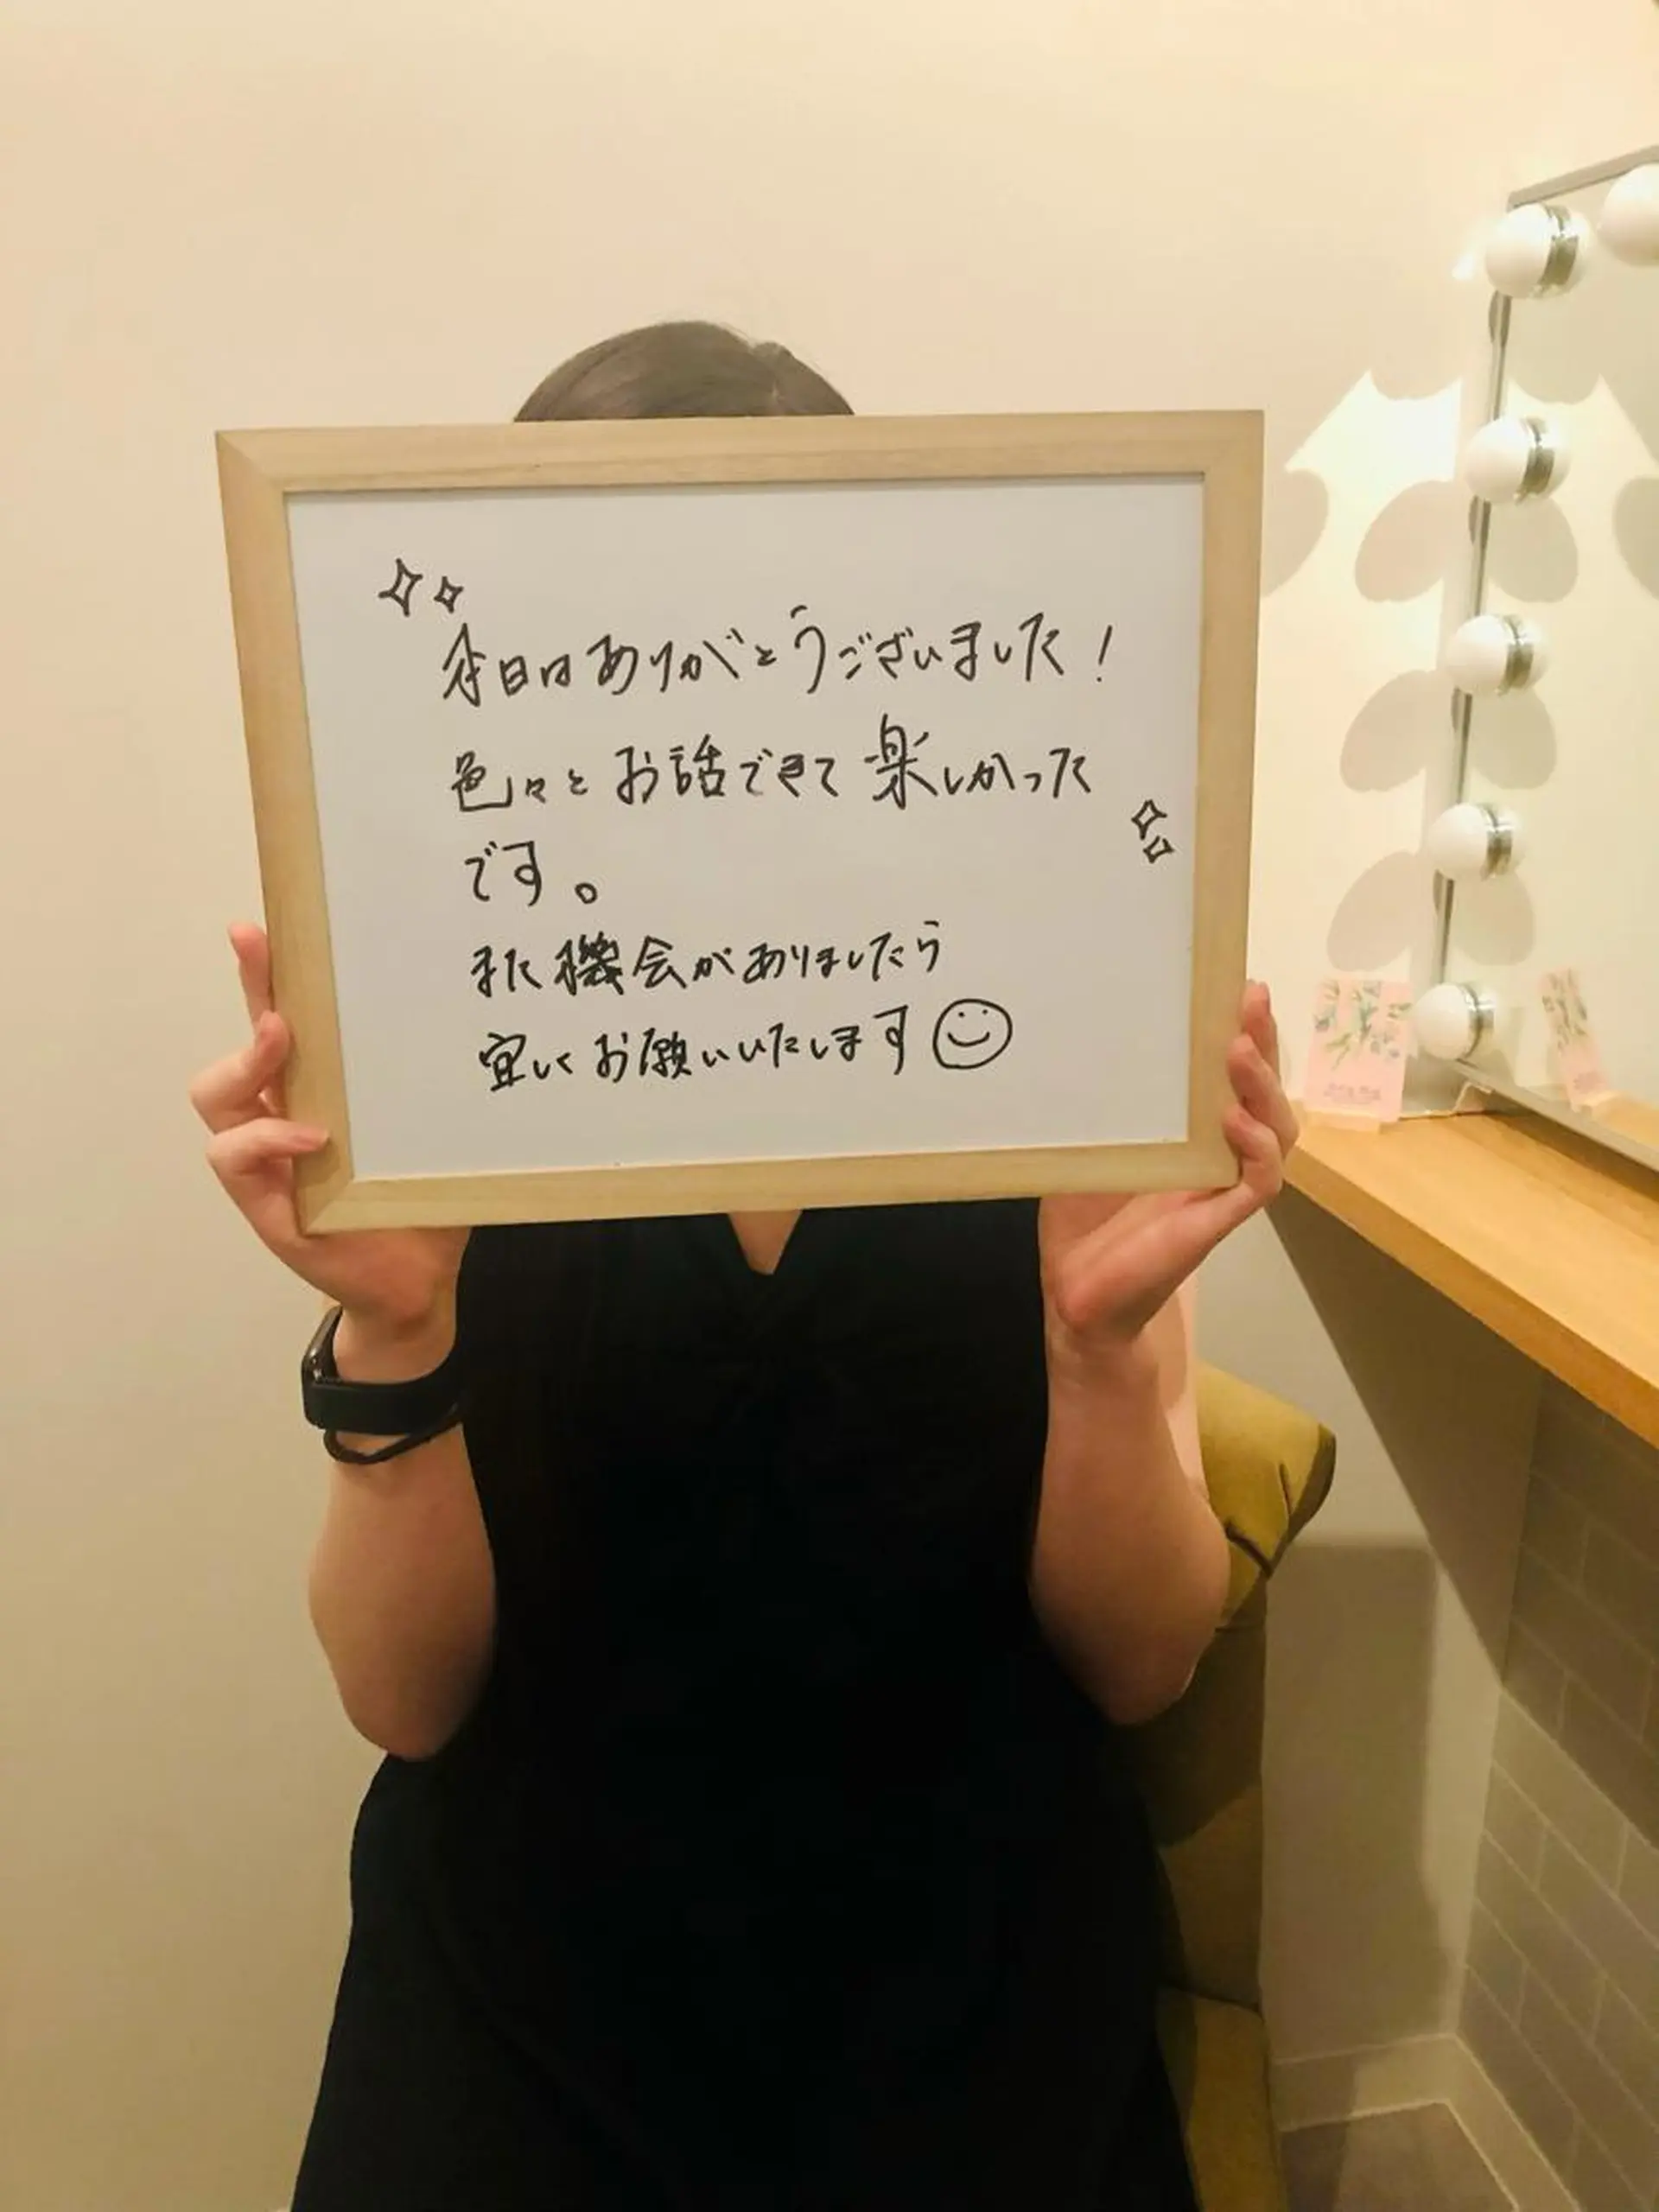 本日はありがとうございました!
色々とお話できて楽しかった
です。
また機会がありましたら
宜しくお願いいたします